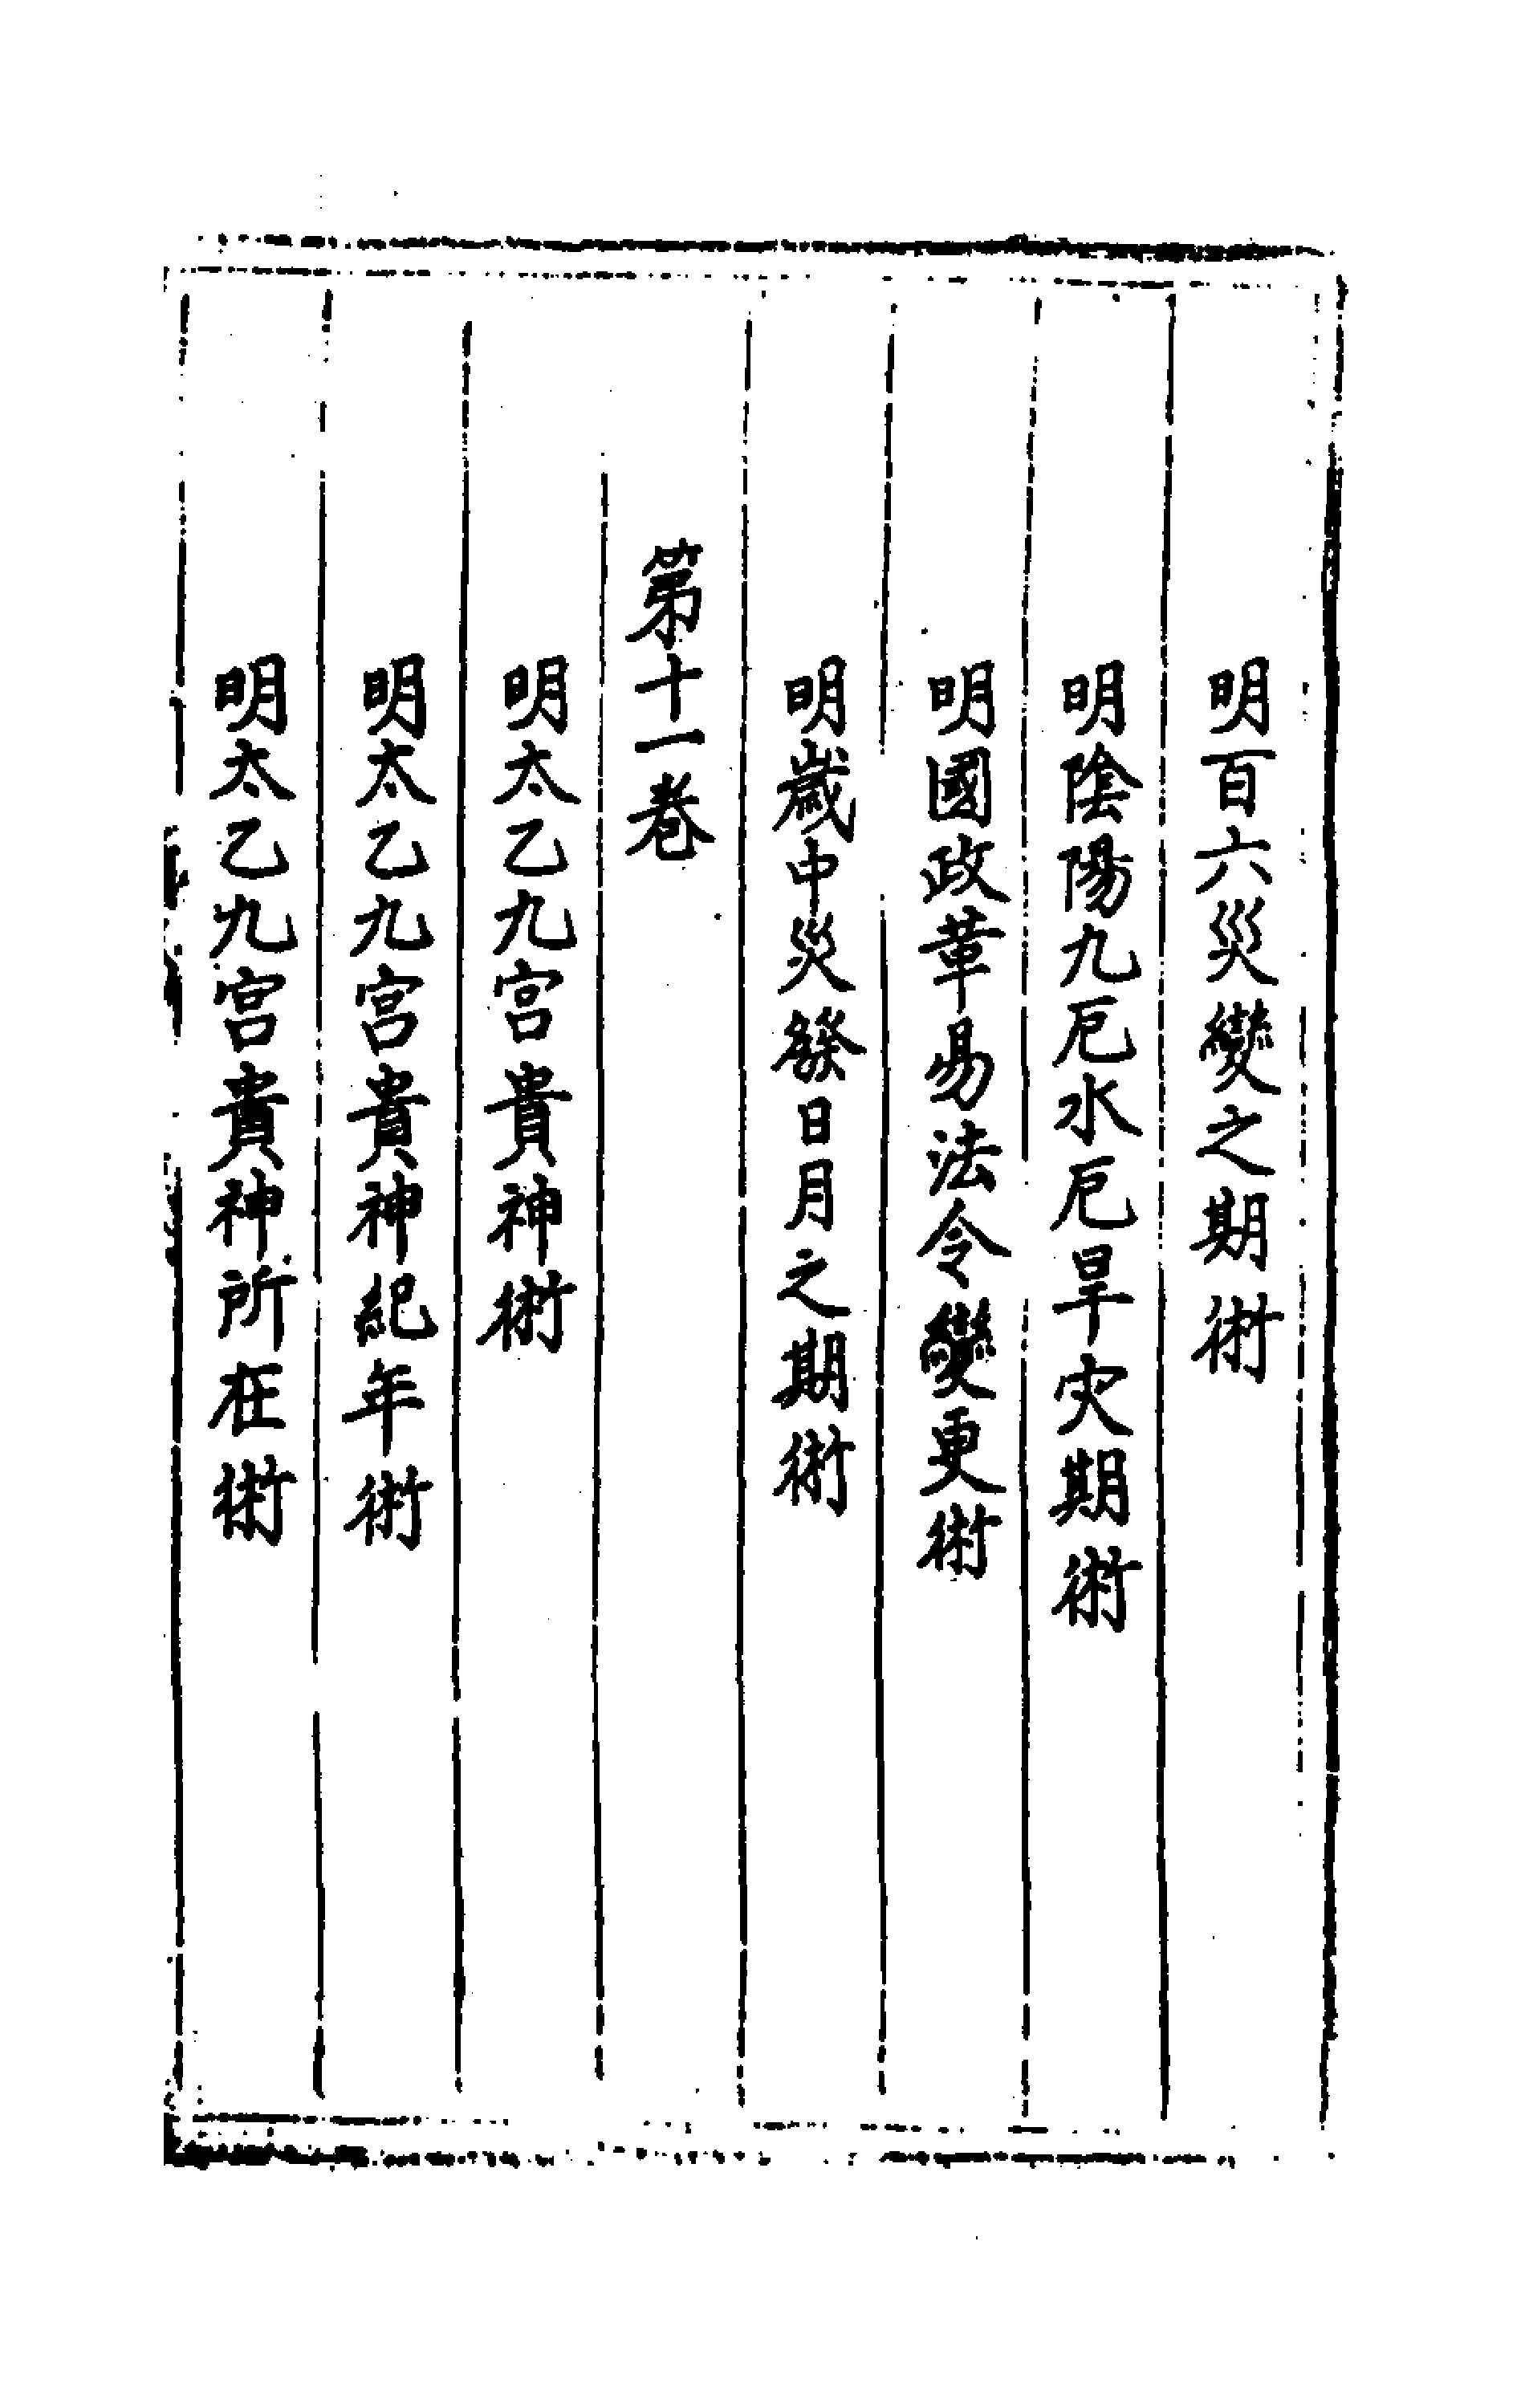 明百六災變之期術
明陰陽九厄水厄旱灾期術
明國政革易法令變更術
明歲中災發日月之期術
第十一卷
明太乙九宫貴神術
明太乙九宫貴神紀年術
明太乙九宫貴神所在術